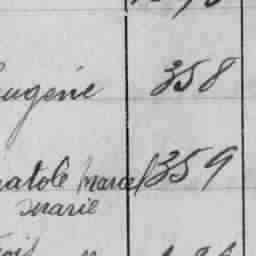 Eugénie 358
natole Marcel 359
Marie